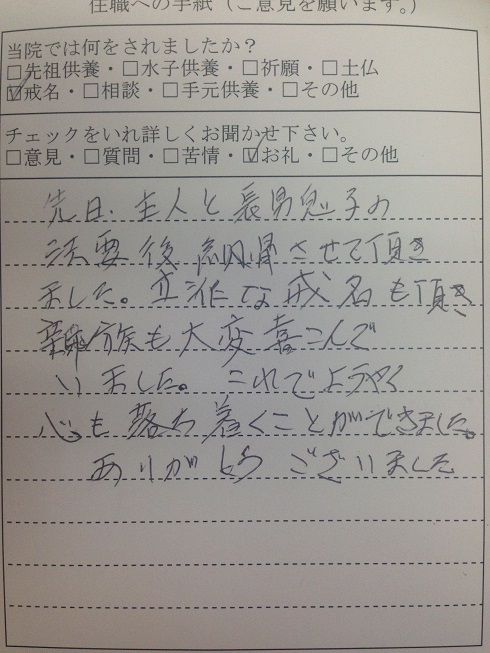 住職への手紙（ご意見を願います。）
当院では何をされましたか？
□先祖供養・□水子供養・□祈願・□土仏
☑戒名・□相談・□手元供養・□その他
チェックをいれ詳しくお聞かせ下さい。
□意見・□質問・□苦情・☑お礼・□その他
先日、主人と長男息子の
法要後納骨させて頂き
ました。立派な戒名も頂き
親族も大変喜こんで
いました。これでようやく
心も落ち着くことができました。
ありがとうございました